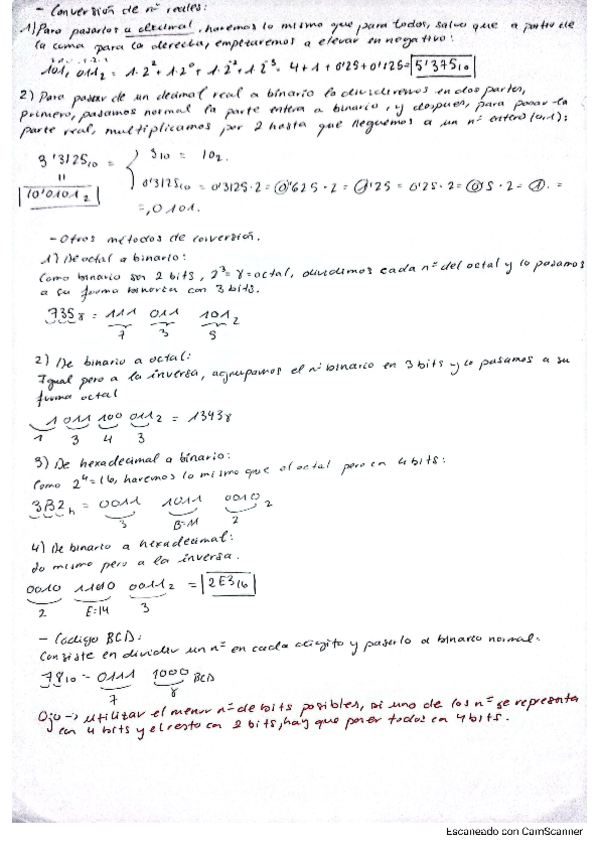 - Conversión de nº reales:
1) Para pasarlos a decimal, haremos lo mismo que para todos, salvo que a partir de
la coma para la derecha, empezaremos a elevar en negativo:
101,011₂ = 1·2² + 1·2⁰ + 1·2⁻² + 1·2⁻³ = 4+1+0'25+0'125= 5'375₁₀
2) Para pasar de un decimal real a binario lo dividiremos en dos partes,
primero, pasamos normal la parte entera a binario, y despues, para pasar la
parte real, multiplicamos por 2 hasta que lleguemos a un nº entero (0,1):
3'3125₁₀ = 3₁₀ = 10₂.
=
10'0101₂ 0'3125₁₀ = 0'3125·2 = 0'625·2 = 1'25 = 0'25·2 = 0'5·2 = 1. =
=,0101.
- Otros métodos de conversión.
1) De octal a binario:
Como binario son 2 bits, 2³=8=octal, dividimos cada nº del octal y lo pasamos
a su forma binaria con 3 bits.
735₈ = 111 011 101₂
7 3 5
2) De binario a octal:
Igual pero a la inversa, agrupamos el nº binario en 3 bits y lo pasamos a su
forma octal
1 011 100 011₂ = 1343₈
1 3 4 3
3) De hexadecimal a binario:
Como 2⁴=16, haremos lo mismo que el octal pero en 4 bits:
3B2ₕ = 0011 1011 0010₂
3 B=11 2
4) De binario a hexadecimal:
Lo mismo pero a la inversa.
0010 1110 0011₂ = 2E3₁₆
2 E=14 3
- Codigo BCD:
Consiste en dividir un nº en cada digito y pasarlo a binario normal.
78₁₀ - 0111 1000 BCD
7 8
Ojo → utilizar el menor nº de bits posibles, si uno de los nº se representa
en 4 bits y el resto en 2 bits, hay que poner todos en 4 bits.
Escaneado con CamScanner